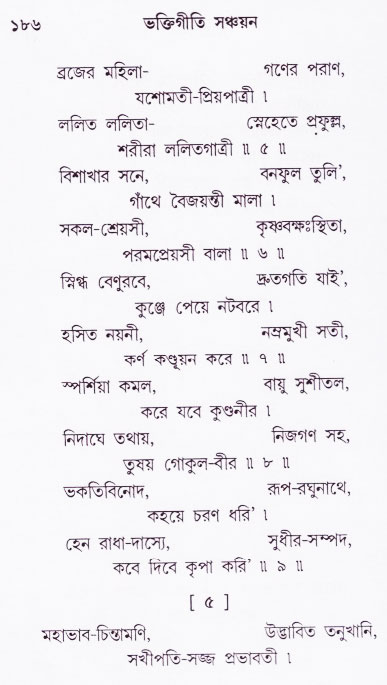 ১৮৬ ভক্তিগীতি সঞ্চয়ন
ব্রজের মহিলা- গণের পরাণ,
যশোমতী-প্রিয়পাত্রী ।
ললিত ললিতা- স্নেহেতে প্রফুল্ল,
শরীরা ললিতগাত্রী ॥ ৫ ॥
বিশাখার সনে, বনফুল তুলি’,
গাঁথে বৈজয়ন্তী মালা ।
সকল-শ্রেয়সী, কৃষ্ণবক্ষঃস্থিতা,
পরমপ্রেয়সী বালা ॥ ৬ ॥
স্নিগ্ধ বেণুরবে, দ্রুতগতি যাই’,
কুঞ্জে পেয়ে নটবরে ।
হসিত নয়নী, নম্রমুখী সতী,
কর্ণ কণ্ডূয়ন করে ॥ ৭ ॥
স্পর্শিয়া কমল, বায়ু সুশীতল,
করে যবে কুণ্ডনীর ।
নিদাঘে তথায়, নিজগণ সহ,
তুষয় গোকুল-বীর ॥ ৮ ॥
ভকতিবিনোদ, রূপ-রঘুনাথে,
কহয়ে চরণ ধরি’ ।
হেন রাধা-দাস্যে, সুধীর-সম্পদ,
কবে দিবে কৃপা করি’ ॥ ৯ ॥
[ ৫ ]
মহাভাব-চিন্তামণি, উদ্ভাবিত তনুখানি,
সখীপতি-সজ্জ প্রভাবতী ।